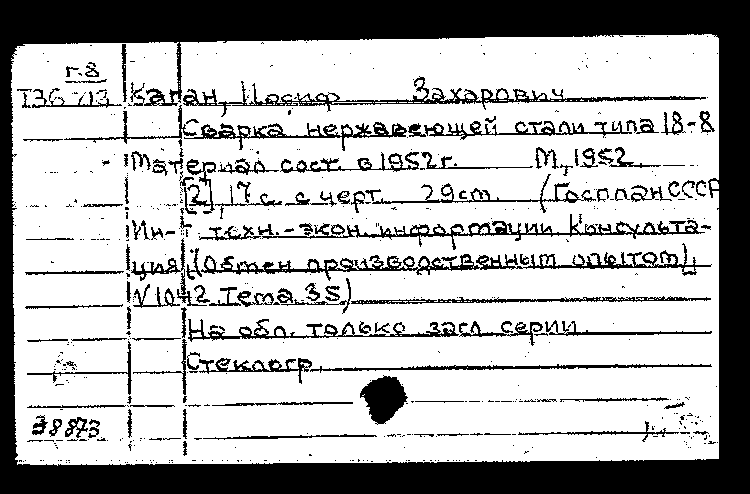 г.8
Т36-713 Каган, Иосиф Захарович
Сварка нержавеющей стали типа 18-8
Материал сост. в 1952 г. М., 1952.
[2], 17 с. с черт. 29 см. (Госплан СССР
Ин-т техн.-экон. информации Консульта-
ция (Обмен производственным опытом),
N 1042. Тема 35)
На обл. только загл серии.
Стеклогр.
38873